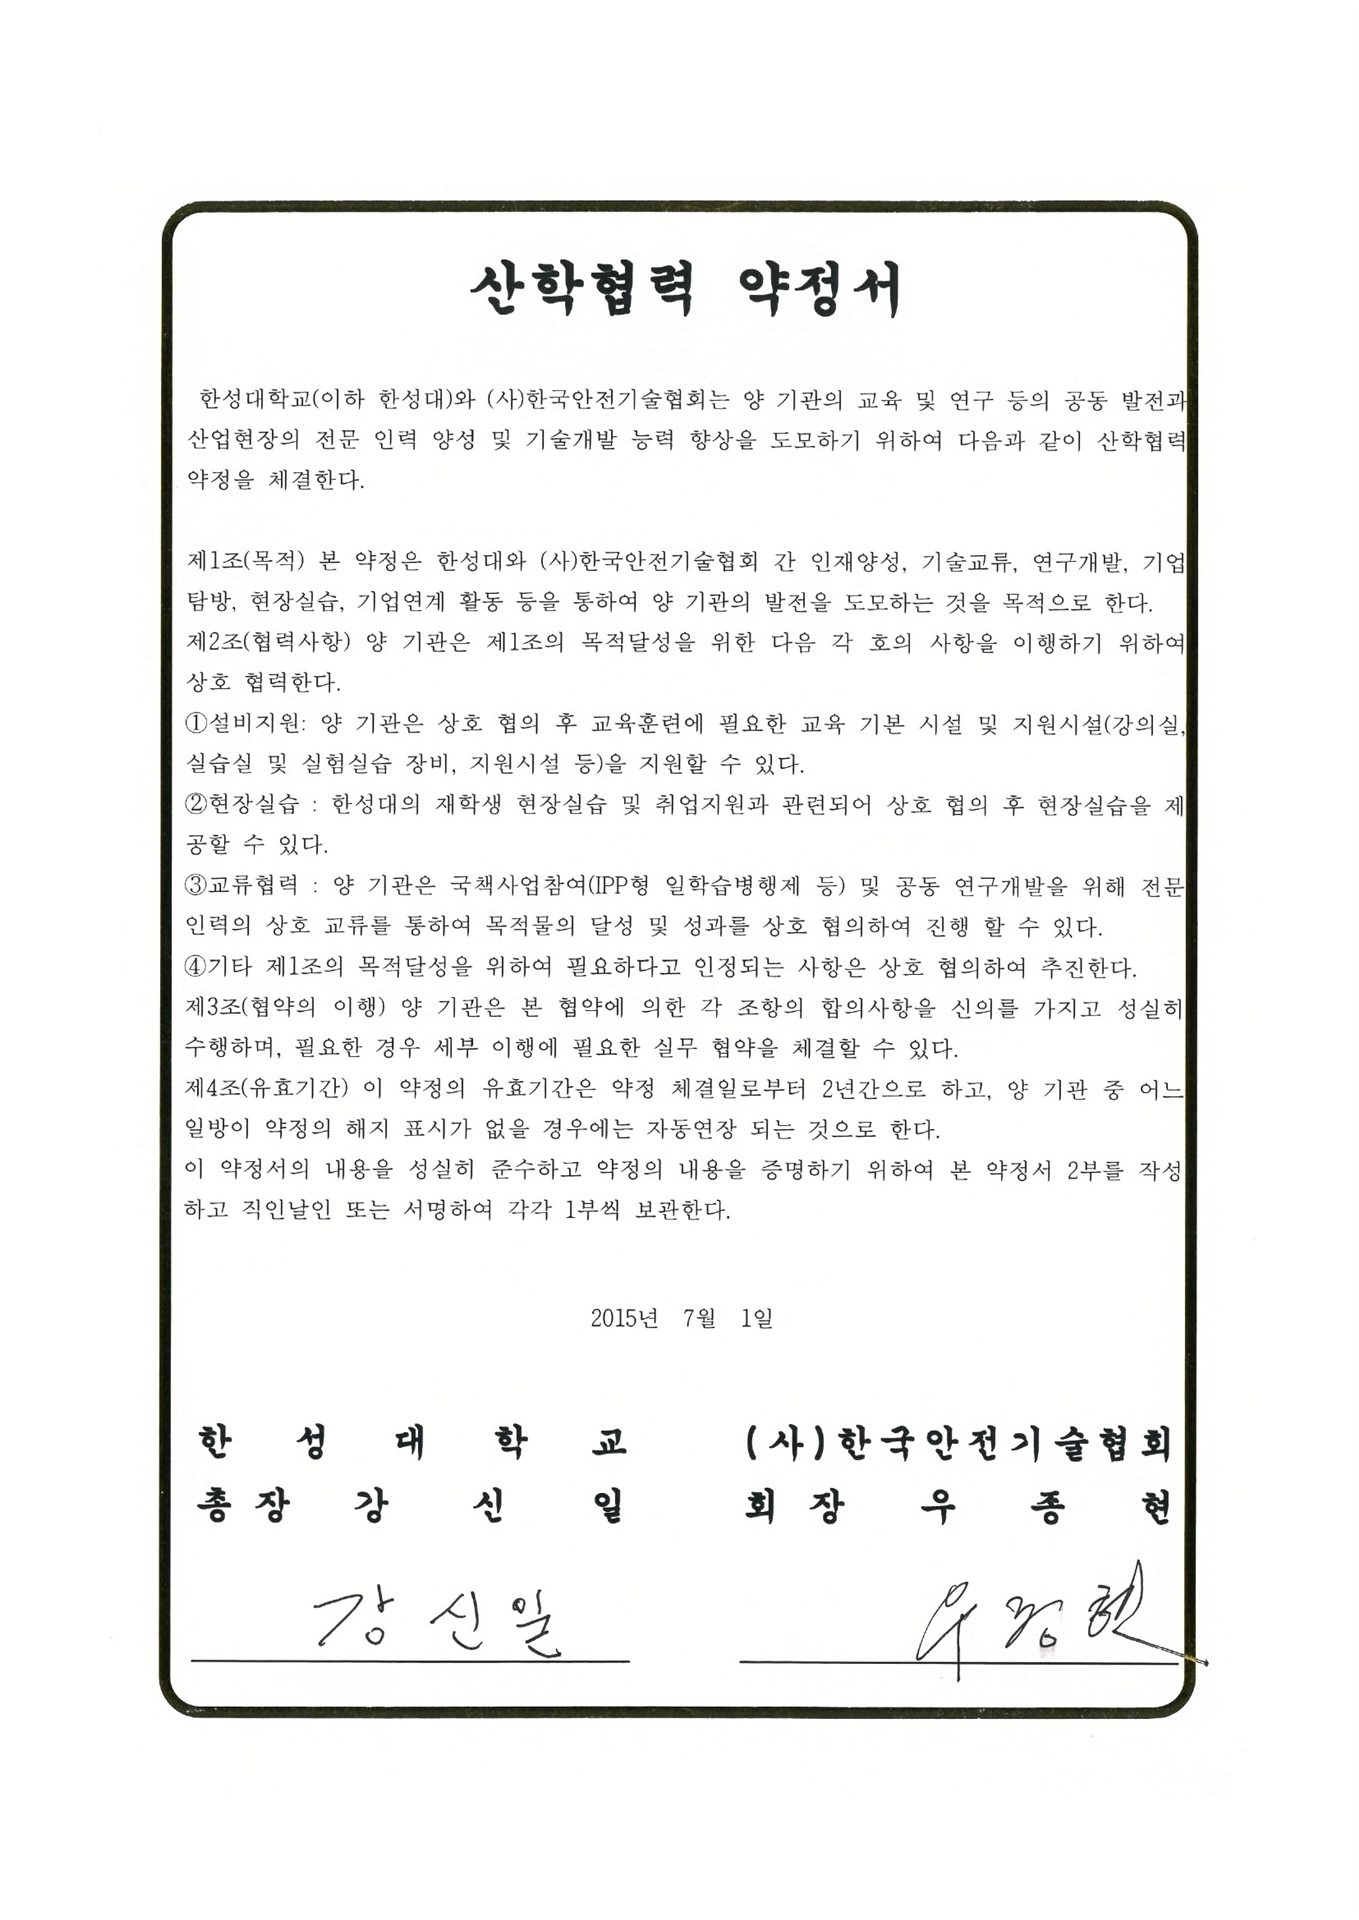 산학협력 약정서
한성대학교(이하 한성대)와 (사)한국안전기술협회는 양 기관의 교육 및 연구 등의 공동 발전과
산업현장의 전문 인력 양성 및 기술개발 능력 향상을 도모하기 위하여 다음과 같이 산학협력
약정을 체결한다.
제1조(목적) 본 약정은 한성대와 (사)한국안전기술협회 간 인재양성, 기술교류, 연구개발, 기업
탐방, 현장실습, 기업연계 활동 등을 통하여 양 기관의 발전을 도모하는 것을 목적으로 한다.
제2조(협력사항) 양 기관은 제1조의 목적달성을 위한 다음 각 호의 사항을 이행하기 위하여
상호 협력한다.
①설비지원: 양 기관은 상호 협의 후 교육훈련에 필요한 교육 기본 시설 및 지원시설(강의실,
실습실 및 실험실습 장비, 지원시설 등)을 지원할 수 있다.
②현장실습 : 한성대의 재학생 현장실습 및 취업지원과 관련되어 상호 협의 후 현장실습을 제
공할 수 있다.
③교류협력 : 양 기관은 국책사업참여(IPP형 일학습병행제 등) 및 공동 연구개발을 위해 전문
인력의 상호 교류를 통하여 목적물의 달성 및 성과를 상호 협의하여 진행 할 수 있다.
④기타 제1조의 목적달성을 위하여 필요하다고 인정되는 사항은 상호 협의하여 추진한다.
제3조(협약의 이행) 양 기관은 본 협약에 의한 각 조항의 합의사항을 신의를 가지고 성실히
수행하며, 필요한 경우 세부 이행에 필요한 실무 협약을 체결할 수 있다.
제4조(유효기간) 이 약정의 유효기간은 약정 체결일로부터 2년간으로 하고, 양 기관 중 어느
일방이 약정의 해지 표시가 없을 경우에는 자동연장 되는 것으로 한다.
이 약정서의 내용을 성실히 준수하고 약정의 내용을 증명하기 위하여 본 약정서 2부를 작성
하고 직인날인 또는 서명하여 각각 1부씩 보관한다.
2015년 7월 1일
한 성 대 학 교 (사)한국안전기술협회
총장 강 신 일 회장 우 종 현
강 신 일 우 종 현